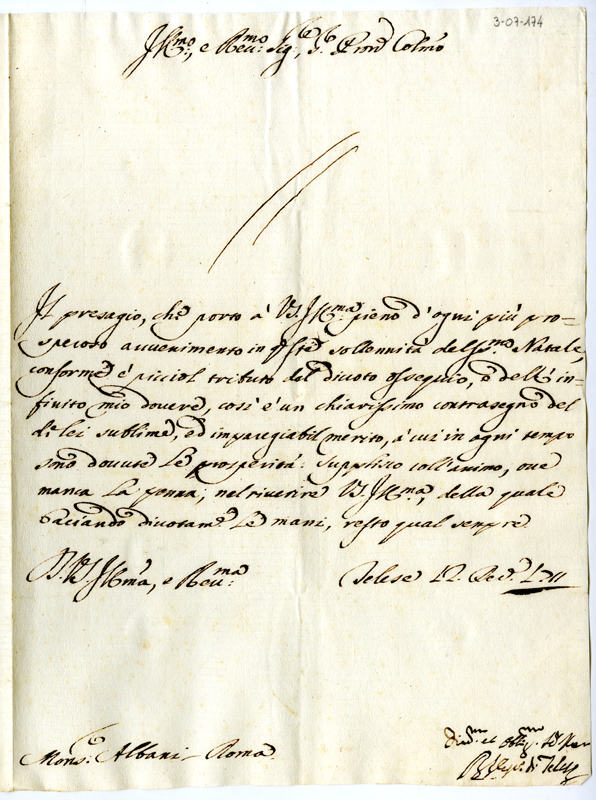 3-07-174
Ill.mo, e Rev.mo Sig.re, S. P.ron Colmo
Il presagio, che porto à V.S. Ill.ma pieno d'ogni più pro=
speroso auvenimento in q.ste sollennità del S.mo Natale,
conforme è picciol tributo del divoto ossequio, e dell' in=
finito mio dovere, così è un chiarissimo contrasegno del
di lei sublime, ed imparegiabil merito, à cui in ogni tempo
sono dovute le prosperità: supplisco coll' animo, ove
manca la penna; nel riverire V.S. Ill.ma, della quale
baciando divotam.e le mani, resto qual sempre
D. V.S. Ill.ma, e Rev.ma
Telese 12. Xe
Mons.r Albani - Roma
Div.mo et Obblig.mo
di Telese